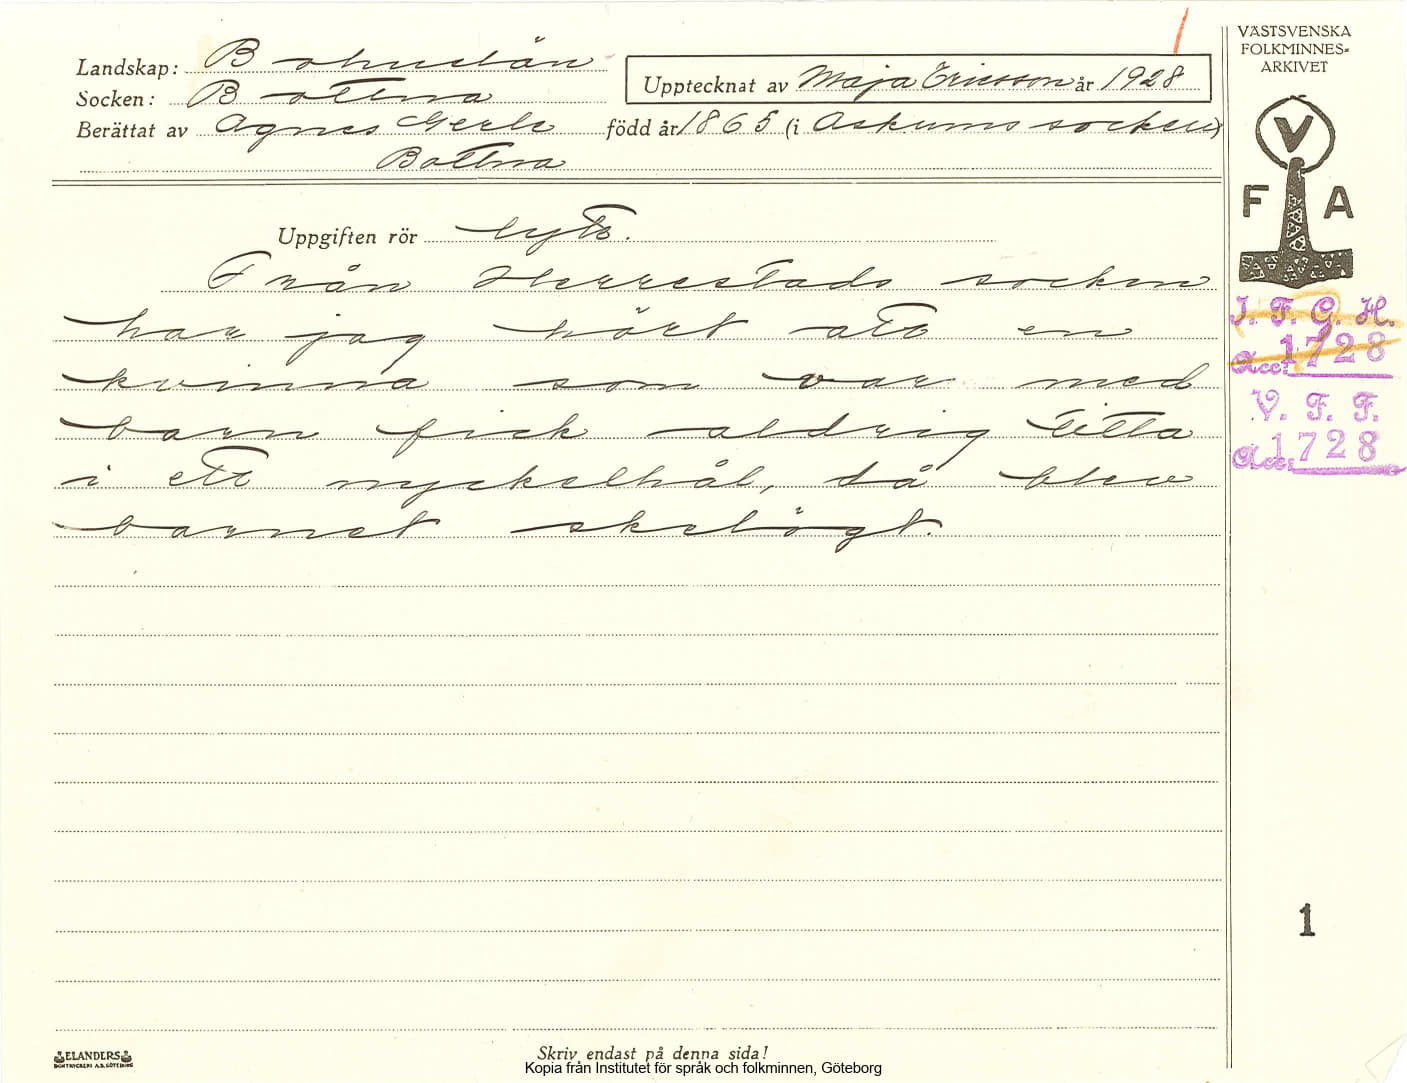 Landskap: Bohuslän
Upptecknat av Maja Ericsson år 1928
Socken: Bottna
Berättat av Agnes Gerle född år 1865 (i Askums socken)
Bottna
VÄSTSVENSKA
FOLKMINNES-
ARKIVET
V
F A
Uppgiften rör lyte.
Från Herrestads socken
har jag hört att en
kvinna som var med
barn fick aldrig titta
i ett nyckelhål, då blev
barnet skelögt.
I. F. G. H.
Acc: 1728
V. F. F.
Acc: 1728
1
ELANDERS
BOKTRYCKERI A.B. GÖTEBORG
Skriv endast på denna sida!
Kopia från Institutet för språk och folkminnen, Göteborg